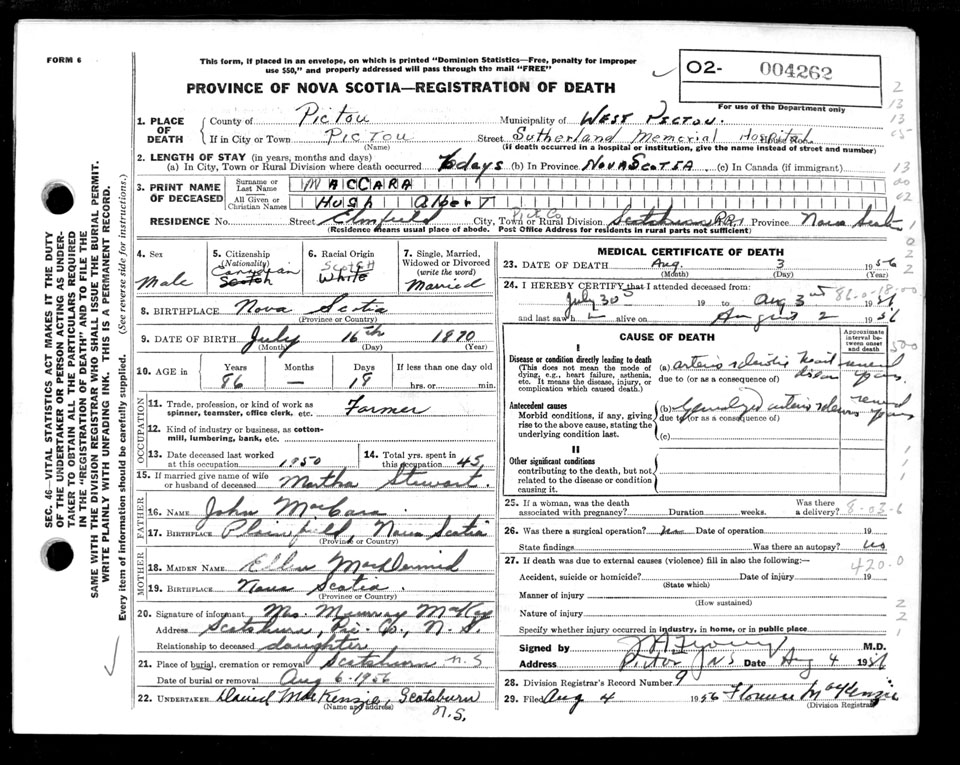 FORM 6
This form, if placed in an envelope, on which is printed "Dominion Statistics—Free, penalty for improper
use $50," and properly addressed will pass through the mail "FREE"
02- 004262
For use of the Department only
PROVINCE OF NOVA SCOTIA—REGISTRATION OF DEATH
1. PLACE OF DEATH
County of Pictou Municipality of West Pictou.
If in City or Town Pictou Street Sutherland Memorial Hospital House No.
(Name) (If death occurred in a hospital or institution, give the name instead of street and number)
2. LENGTH OF STAY (in years, months and days)
(a) In City, Town or Rural Division where death occurred 6 days (b) In Province Nova Scotia (c) In Canada (if immigrant)
3. PRINT NAME OF DECEASED
Surname or Last Name MacCara
All Given or Christian Names Hugh Albert
RESIDENCE No. Street Elmfield City, Town or Rural Division Pict Co Scotsburn R.R.1 Province Nova Scotia
(Residence means usual place of abode. Post Office Address for residents in rural parts not sufficient)
4. Sex
Male
5. Citizenship
(Nationality)
Canadian
Scotch
6. Racial Origin
Scotch
White
7. Single, Married,
Widowed or Divorced
(write the word)
Married
8. BIRTHPLACE Nova Scotia
(Province or Country)
9. DATE OF BIRTH July 16th 1870
(Month) (Day) (Year)
10. AGE in
Years Months Days If less than one day old
86 — 18 hrs. or min.
OCCUPATION
11. Trade, profession, or kind of work as
spinner, teamster, office clerk, etc. Farmer
12. Kind of industry or business, as cotton-
mill, lumbering, bank, etc.
13. Date deceased last worked
at this occupation 1950
14. Total yrs. spent in
this occupation 45
15. If married give name of wife
or husband of deceased Martha Stewart.
FATHER
16. Name John MacCara
17. BIRTHPLACE Plainfield, Nova Scotia
(Province or Country)
MOTHER
18. MAIDEN NAME Ellen MacDiarmid
19. BIRTHPLACE Nova Scotia.
(Province or Country)
20. Signature of informant Mrs. Murray MacKay
Address Scotsburn, Pic. Co., N. S.
Relationship to deceased daughter
21. Place of burial, cremation or removal Scotsburn N.S
Date of burial or removal Aug 6-1956
22. UNDERTAKER David MacKenzie, Scotsburn
(Name and address) N.S.
MEDICAL CERTIFICATE OF DEATH
23. DATE OF DEATH Aug. 3 1956
(Month) (Day) (Year)
24. I HEREBY CERTIFY that I attended deceased from:
July 30 19 to Aug 3 1956
86-0-18-00
and last saw h alive on August 2 1956
CAUSE OF DEATH
Approximate interval between onset and death
I
Disease or condition directly leading to death
(This does not mean the mode of
dying, e.g., heart failure, asthenia,
etc. It means the disease, injury, or
complication which caused death.)
(a) arteriosclerotic heart disease several years.
due to (or as a consequence of)
Antecedent causes
Morbid conditions, if any, giving
rise to the above cause, stating the
underlying condition last.
(b) Generalized arteriosclerosis several years
due to (or as a consequence of)
(c)
II
Other significant conditions
contributing to the death, but not
related to the disease or condition
causing it.
25. If a woman, was the death
associated with pregnancy? Duration weeks. Was there a delivery?
8-03-6
26. Was there a surgical operation? no Date of operation 19
State findings Was there an autopsy? no
420.0
27. If death was due to external causes (violence) fill in also the following:—
Accident, suicide or homicide? Date of injury 19
(State which)
Manner of injury
(How sustained)
Nature of injury
Specify whether injury occurred in industry, in home, or in public place
Signed by M.D.
Address Pictou N S Date Aug 4 1956
28. Division Registrar's Record Number 9
29. Filed Aug 4 1956 Florence McKenzie
(Division Registrar)
SEC. 46—VITAL STATISTICS ACT MAKES IT THE DUTY
OF THE UNDERTAKER OR PERSON ACTING AS UNDER-
TAKER TO OBTAIN ALL THE PARTICULARS REQUIRED
IN THE "REGISTRATION OF DEATH" AND TO FILE THE
SAME WITH THE DIVISION REGISTRAR WHO SHALL ISSUE THE BURIAL PERMIT.
WRITE PLAINLY WITH UNFADING INK. THIS IS A PERMANENT RECORD.
Every item of information should be carefully supplied. (See reverse side for instructions.)